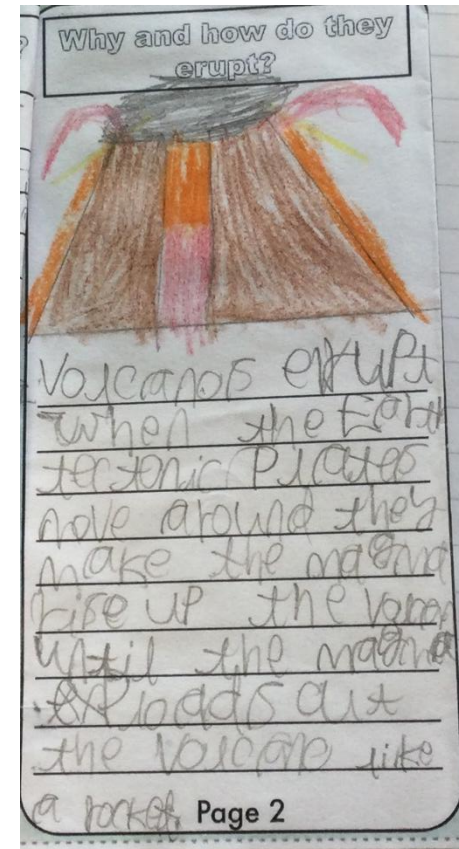 Why and how do they
erupt?
Volcanos erupt
when the Earth
tectonic Plates
move around they
make the magma
rise up the
until the magma
exploads out
the volcano like
a rocket
Page 2